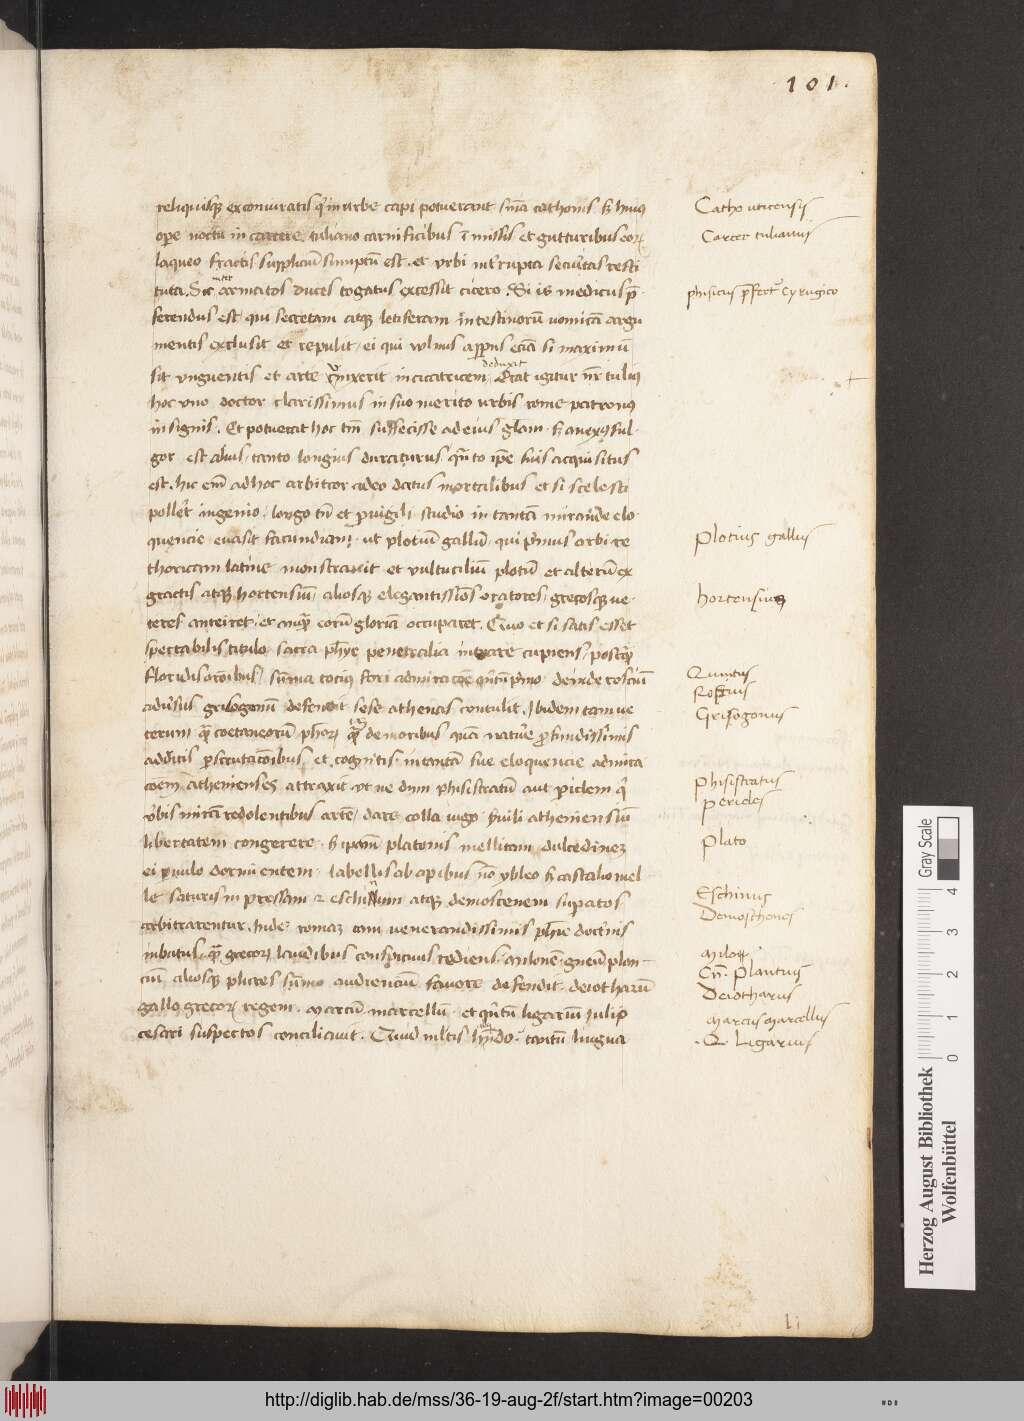 101.
reliquisque ex coniuratis qui in urbe capi potuerant suma cathonis s; huius
ope noctu in carcere tuliano carnificibus imissis et gutturibus eorum
laqueo fractis supplicium sumptum est. et urbi interrupta securitas resti
tuta. Sic inter armatos duces togatus excessit cicero. Si is medicus pre
ferendus est qui secretam atque letiferam intestinorum vomicam argu
mentis exclusit et repulit, ei qui vulnus apparens etiam si maximum
sit unguentis et arte traxerit in cicatricem deduxit Erat igitur noster tulius
hoc uno doctor clarissimus in suo merito urbis rome patronus
insignis. Et potuerat hoc tantum suffecisse ad eius gloriam. s; ful
gor est alius, tanto longius duraturus quanto ipse suis acquisitus
est. hic enim ad hoc arbitror adeo datus mortalibus et si scelesti
polleret ingenio, longo tamen et pervigili studio in tantam mirande elo
quencie evasit facundiam, ut plotium gallum, qui primus orbi re
thoricam latine monstravit et vultucilium plotum et alterum ex
gractis atque hortensium, aliosque elegantissimos oratores, grecosque ve
teres anteiret, et eorum gloriam occuparet. Quo et si satis esset
spectabilis titulo, sacra phylosophye penetralia intrare cupiens, postquam
floridis orationibus, summa tocius fori admiratione quintum primo deinde roscium
adversus grisogonum defendit sese athenas contulit. Ibidem tam ve
terum quam coetaneorum phylosophorum quam de moribus quam nature profundissimis
additis perscrutationibus et cognitis. in tantam sue eloquencie admira
tionem athenienses attraxit ut ne dum phisistratum aut periclem qui
verbis miram redolentibus artem, dare colla iugo servili atheniensium
libertatem coegere. s; ipsam platonis mellitam dulcedinem
ei parvulo dormientem labellis ab apibus non ybleo s; castalio mel
le saturis impressam et eschinum atque demostenem superatos
arbitrarentur. Inde romam tam venerandissimis phylosophie doctrinis
imbutus, quam grecorum laudibus conspicuus rediens. milonem. gneum plan-
cium aliosque plures summo audiencium favore defendit. deiotharum
gallo grecorum regem. marcum marcellum. et quintum ligarium iulio
cesari suspectos conciliavit. Quid multis tantum lingua
Catho uticensis
Carcer tulianus
phisicus prefertur Cyrugico
Plotius gallus
hortensius
Quintus
Roscius
Grisogonus
Phisistratus
pericles
Plato
Eschinus
Demosthenes
Milo
Cn. Plantius
Deiotharus
Marcus Marcellus
.Q. Ligarius
Herzog August Bibliothek
Wolfenbüttel
Gray Scale
0 1 2 3 4
http://diglib.hab.de/mss/36-19-aug-2f/start.htm?image=00203